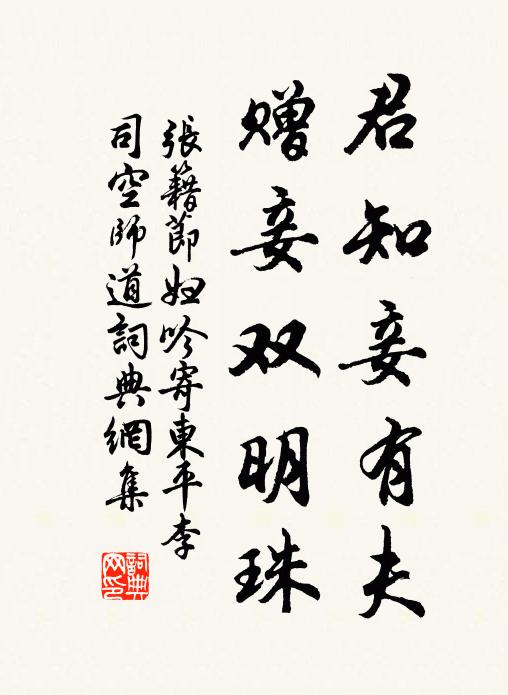 君知妾有夫
赠妾双明珠
張籍節婦吟寄東平李
司空師道詞典網集
詞典网印